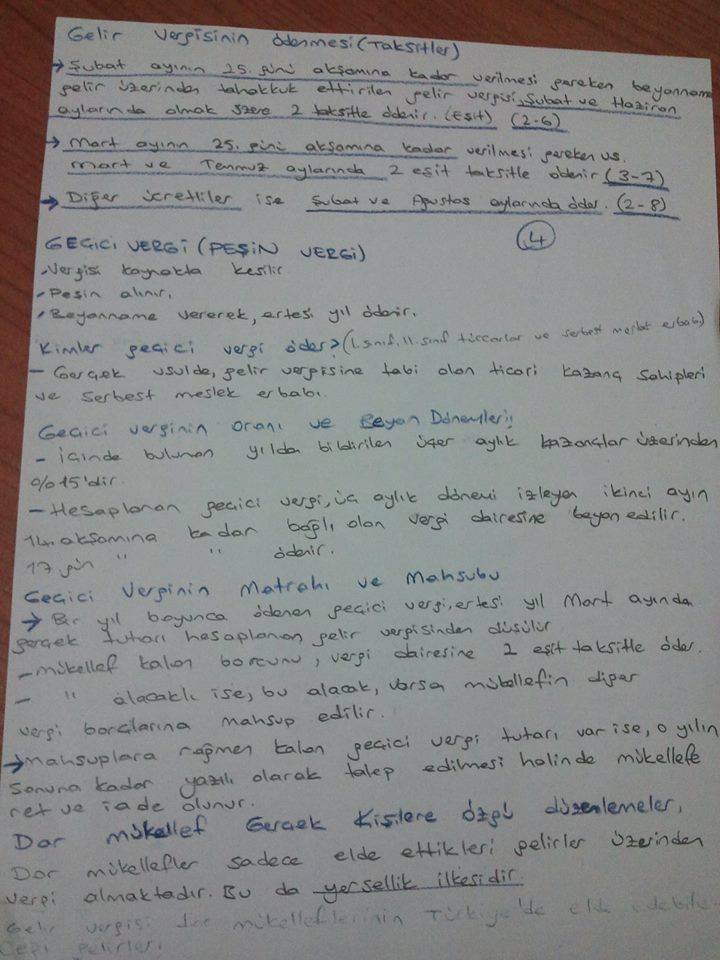 Gelir Vergisinin ödenmesi (Taksitler)
→ Şubat ayının 25. günü akşamına kadar verilmesi gereken beyanname
gelir üzerinden tahakkuk ettirilen gelir vergisi, Şubat ve Haziran
aylarında olmak üzere 2 taksitle ödenir. (Eşit) (2-6)
→ Mart ayının 25. günü akşamına kadar verilmesi gereken vs.
Mart ve Temmuz aylarında 2 eşit taksitle ödenir (3-7)
→ Diğer ücretliler ise Şubat ve Ağustos aylarında öder. (2-8)
4
GEÇİCİ VERGİ (PEŞİN VERGİ)
- Vergisi kaynakta kesilir
- Peşin alınır.
- Beyanname vererek, ertesi yıl ödenir.
Kimler geçici vergi öder? (I. sınıf, II. sınıf tüccarlar ve serbest meslek erbabı)
- Gerçek usulde, gelir vergisine tabi olan ticari kazanç sahipleri
ve serbest meslek erbabı.
Geçici verginin oranı ve Beyan Dönemleri;
- İçinde bulunan yılda bildirilen üçer aylık kazançlar üzerinden
%15'dir.
- Hesaplanan geçici vergi, üç aylık dönemi izleyen ikinci ayın
14. akşamına kadar bağlı olan vergi dairesine beyan edilir.
17 gün " " ödenir.
Geçici Verginin Matrahı ve Mahsubu
→ Bir yıl boyunca ödenen geçici vergi, ertesi yıl Mart ayında
gerçek tutarı hesaplanan gelir vergisinden düşülür
- mükellef kalan borcunu, vergi dairesine 2 eşit taksitle öder.
- " alacaklı ise, bu alacak, varsa mükellefin diğer
vergi borçlarına mahsup edilir.
→ Mahsuplara rağmen kalan geçici vergi tutarı var ise, o yılın
sonuna kadar yazılı olarak talep edilmesi halinde mükellefe
ret ve iade olunur.
Dar mükellef Gerçek Kişilere Özgü düzenlemeler,
Dar mükellefler sadece elde ettikleri gelirler üzerinden
vergi almaktadır. Bu da yersellik ilkesidir.
Gelir vergisi dar mükelleflerinin Türkiye'de elde
gelirleri